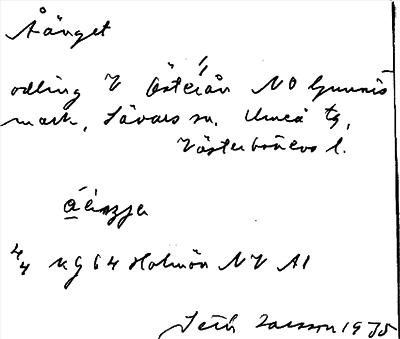 Åänget
odling V Österån NO Gunnis
mark, Sävars sn. Umeå tg,
Västerbottens l.
4/4 Kg 64 Holmön NV A1
Seth Larsson 1975